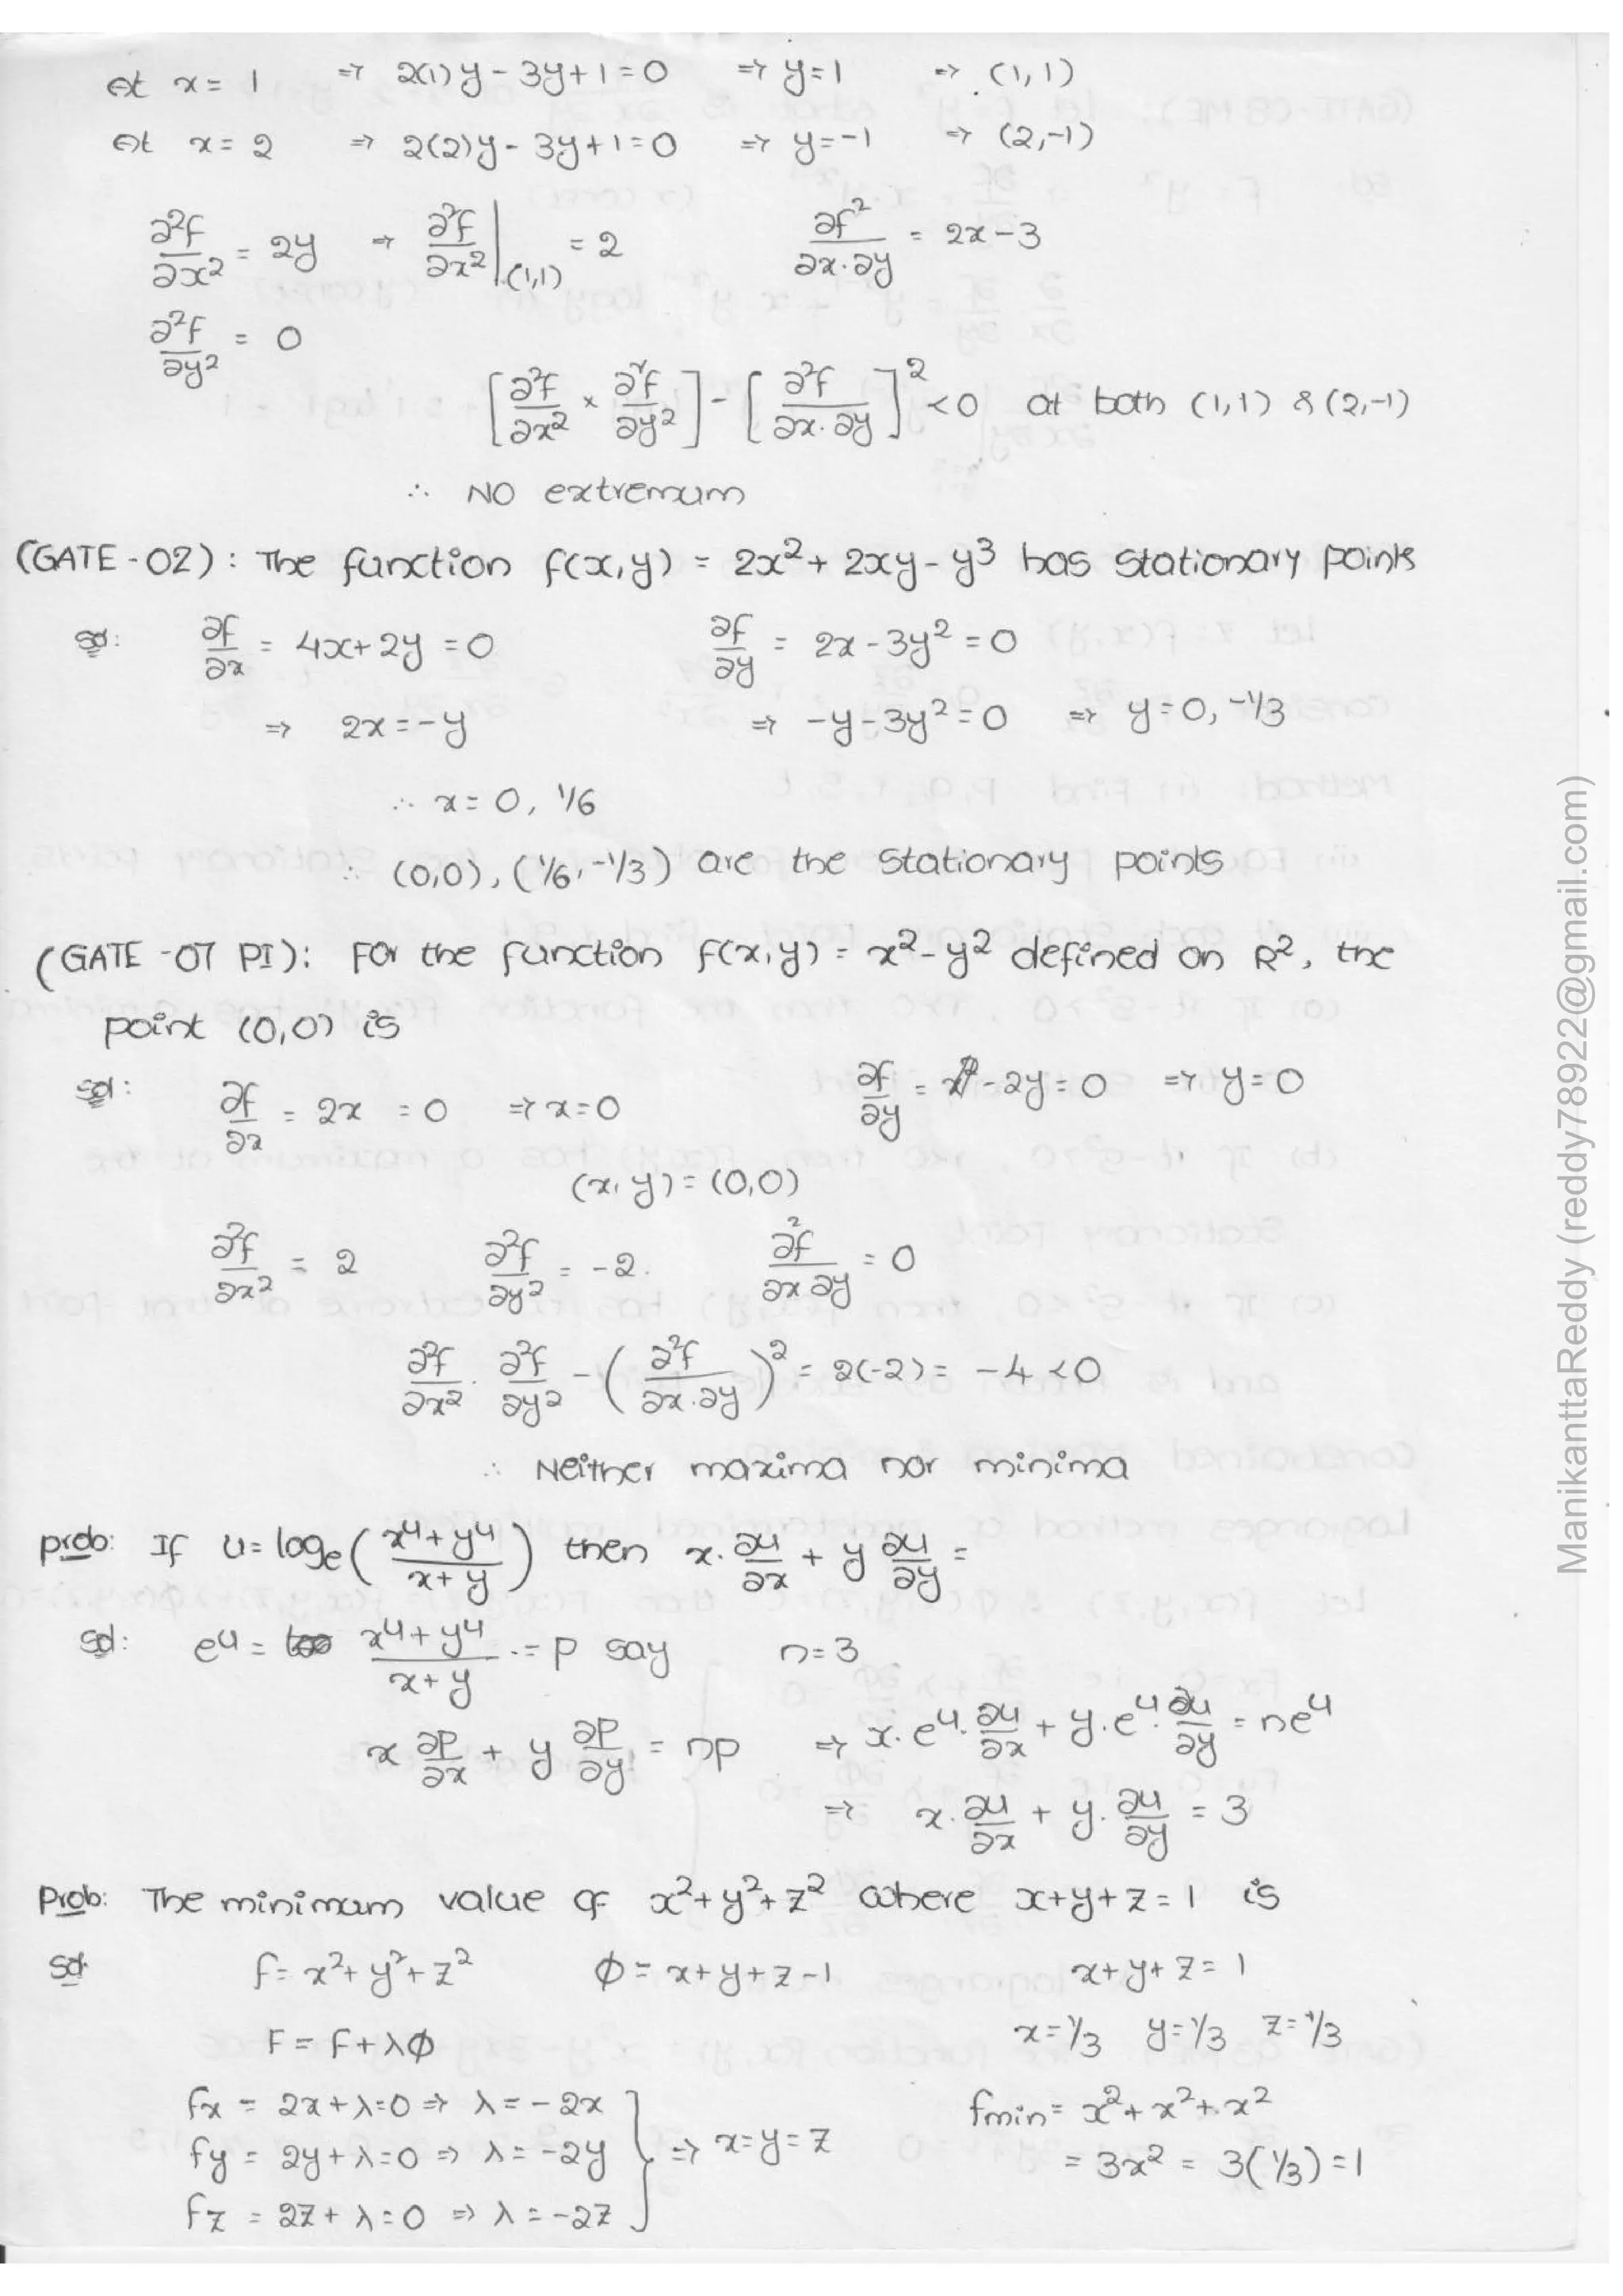 At x = 1 ⇒ 2(1)y - 3y + 1 = 0 ⇒ y = 1 ⇒ (1, 1)
At x = 2 ⇒ 2(2)y - 3y + 1 = 0 ⇒ y = -1 ⇒ (2, -1)
∂²f/∂x² = 2y ⇒ ∂²f/∂x²|(1,1) = 2 ∂f²/∂x.∂y = 2x - 3
∂²f/∂y² = 0
[∂²f/∂x² × ∂²f/∂y²] - [∂²f/∂x.∂y]² < 0 at both (1,1) & (2,-1)
∴ NO extremum
(GATE - 02) : The function f(x,y) = 2x² + 2xy - y³ has stationary points
Sol: ∂f/∂x = 4x + 2y = 0 ∂f/∂y = 2x - 3y² = 0
⇒ 2x = -y ⇒ -y - 3y² = 0 ⇒ y = 0, -1/3
∴ x = 0, 1/6
∴ (0,0), (1/6, -1/3) are the stationary points
(GATE - 07 PI): For the function f(x,y) = x² - y² defined on R², the
point (0,0) is
Sol: ∂f/∂x = 2x = 0 ⇒ x = 0 ∂f/∂y = -2y = 0 ⇒ y = 0
(x, y) = (0,0)
∂²f/∂x² = 2 ∂²f/∂y² = -2. ∂²f/∂x∂y = 0
∂²f/∂x² . ∂²f/∂y² - (∂²f/∂x.∂y)² = 2(-2) = -4 < 0
∴ Neither maxima nor minima
prob: If u = logₑ((x⁴ + y⁴)/(x + y)) then x. ∂u/∂x + y ∂u/∂y =
Sol: eᵘ = (x⁴ + y⁴)/(x + y) = p say n = 3
x ∂p/∂x + y ∂p/∂y = np ⇒ x. eᵘ. ∂u/∂x + y. eᵘ. ∂u/∂y = neᵘ
⇒ x. ∂u/∂x + y. ∂u/∂y = 3
Prob: The minimum value of x² + y² + z² where x + y + z = 1 is
Sol f = x² + y² + z² φ = x + y + z - 1 x + y + z = 1
F = f + λφ x = 1/3 y = 1/3 z = 1/3
fx = 2x + λ = 0 ⇒ λ = -2x fmin = x² + x² + x²
fy = 2y + λ = 0 ⇒ λ = -2y } ⇒ x = y = z = 3x² = 3(1/3) = 1
fz = 2z + λ = 0 ⇒ λ = -2z
ManikanttaReddy (reddy78922@gmail.com)